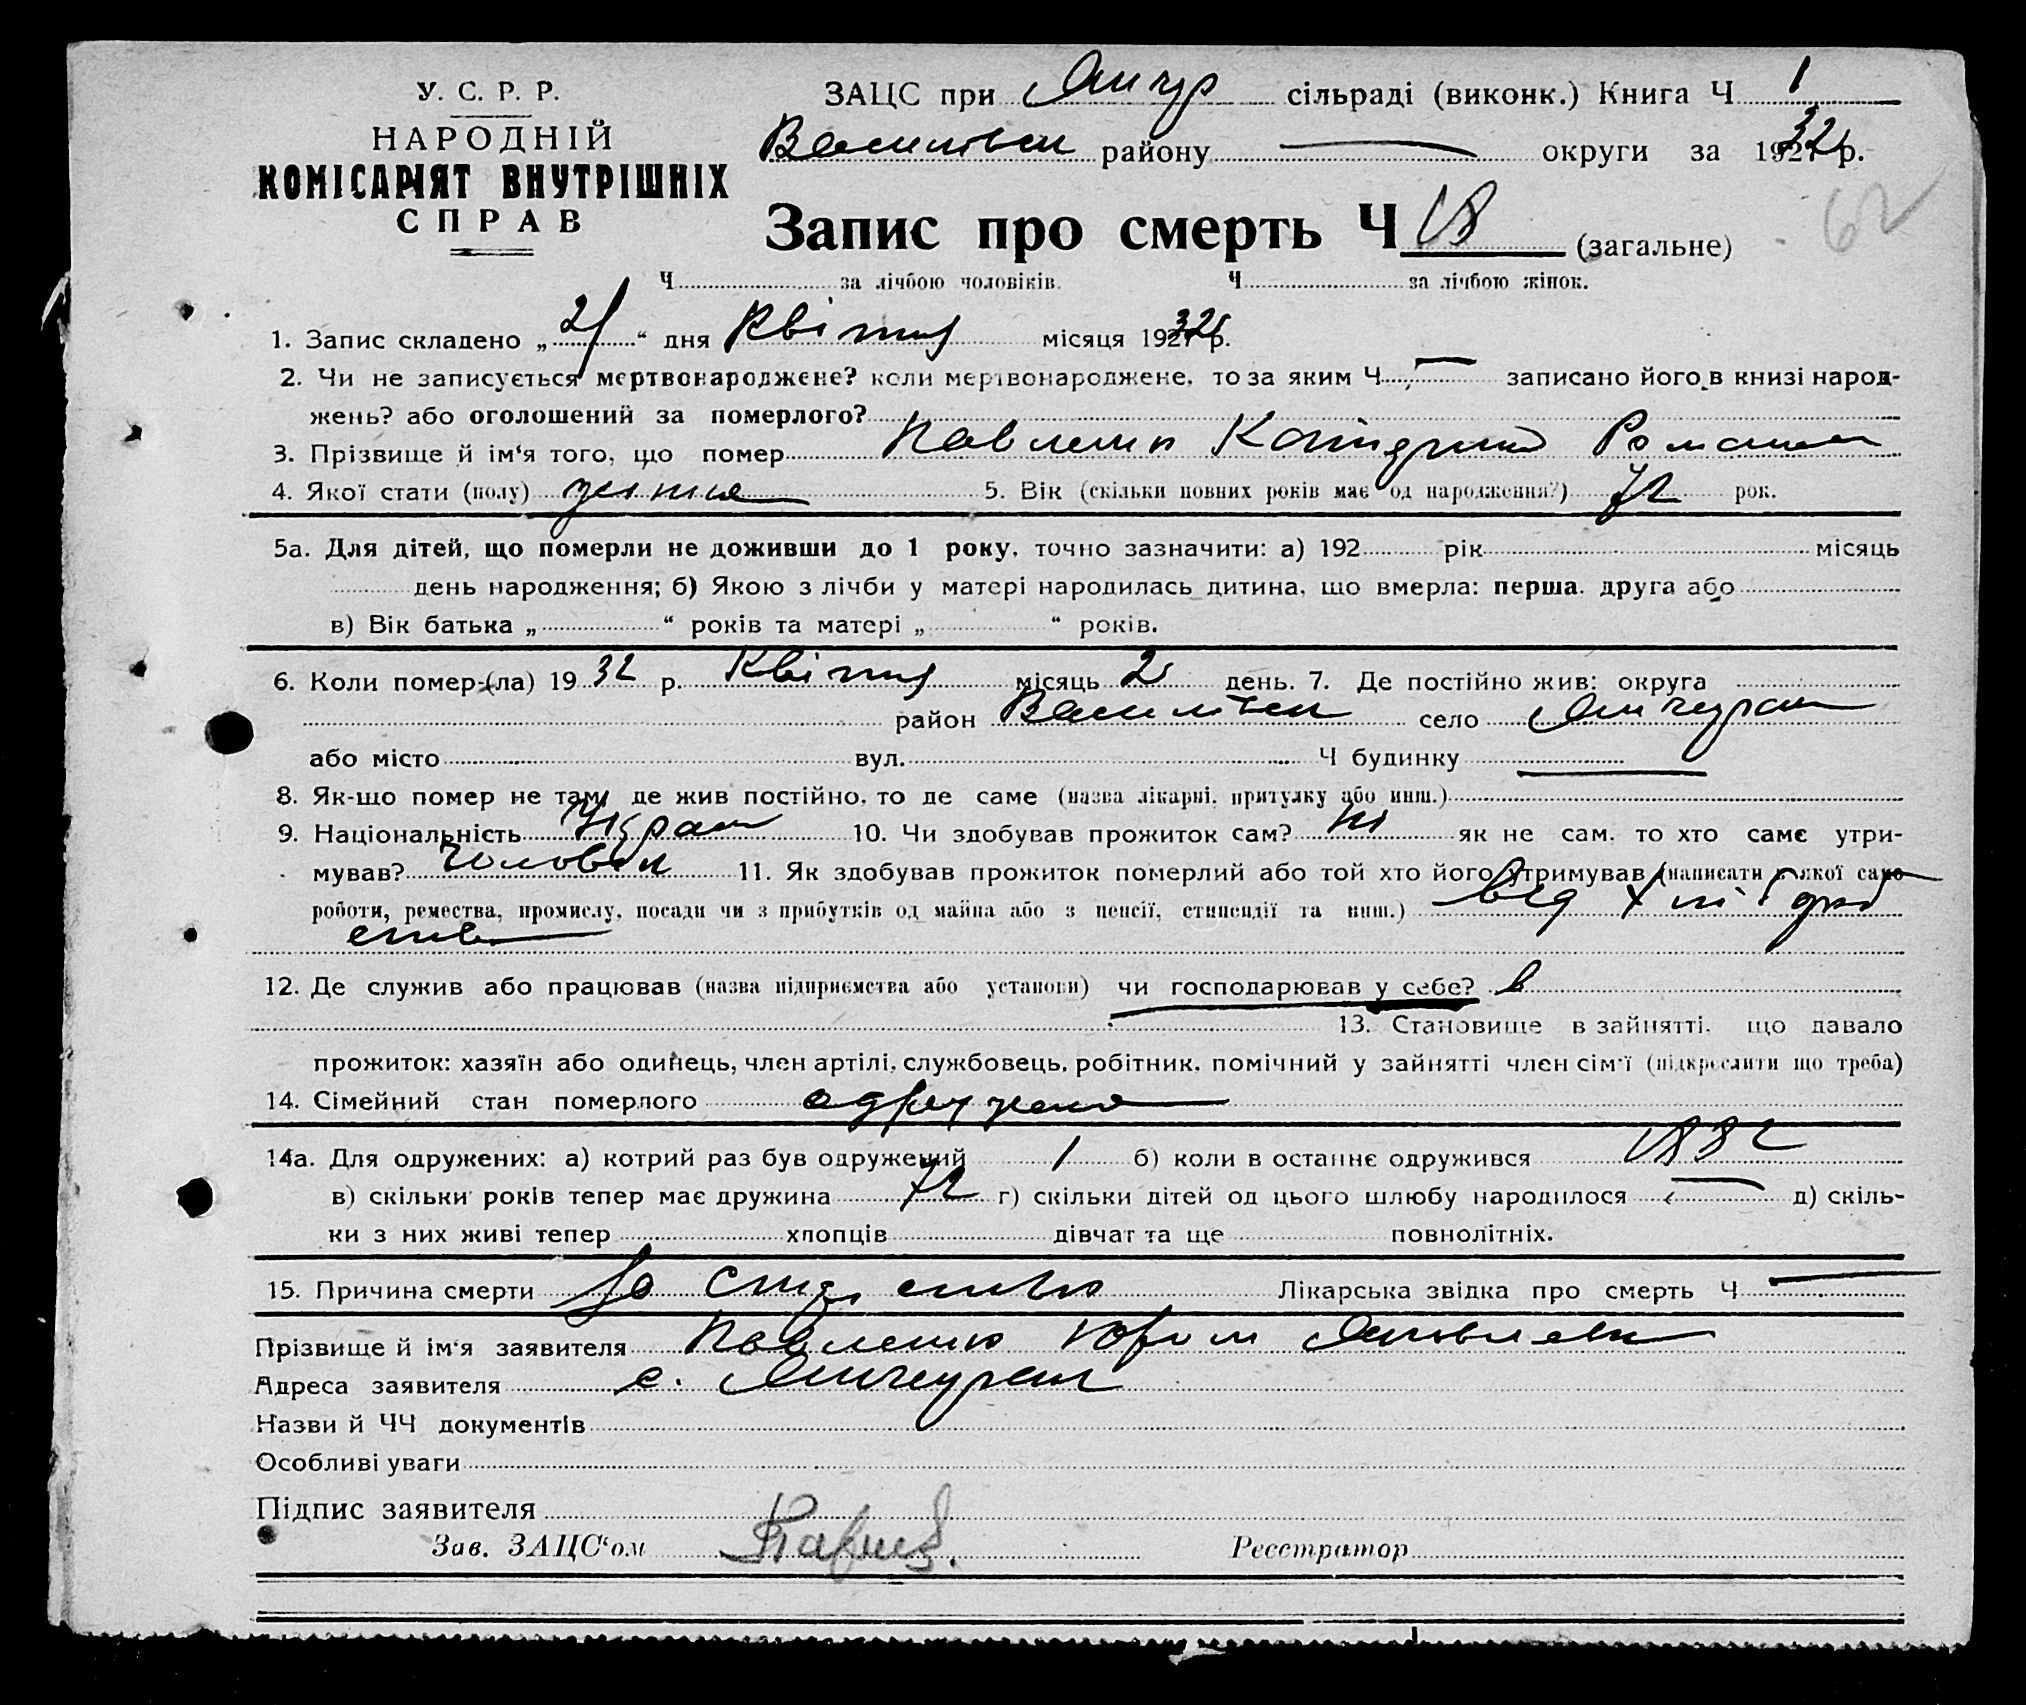 У. С. Р. Р.
НАРОДНІЙ
КОМІСАРІЯТ ВНУТРІШНІХ
СПРАВ
ЗАЦС при сільраді (виконк.) Книга Ч 1
району — округи за 1932 р.
Запис про смерть Ч 18 (загальне)
62
Ч за лічбою чоловіків. Ч за лічбою жінок.
1. Запис складено „ “ дня Квітня місяця 1932 р.
2. Чи не записується мертвонароджене? коли мертвонароджене, то за яким Ч — записано його в книзі народ-
жень? або оголошений за померлого?
3. Прізвище й ім‘я того, що помер Павленко Роман
4. Якої стати (полу) жіноча 5. Вік (скільки повних років має од народження?) 72 рок.
5а. Для дітей, що померли не доживши до 1 року, точно зазначити: а) 192 рік місяць
день народження; б) Якою з лічби у матері народилась дитина, що вмерла: перша. друга або
в) Вік батька „ “ років та матері „ “ років.
6. Коли помер-(ла) 1932 р. Квітня місяць 2 день. 7. Де постійно жив: округа
район село
або місто вул. Ч будинку —
8. Як-що помер не там, де жив постійно, то де саме (назва лікарні, притулку або инш.)
9. Національність Україн 10. Чи здобував прожиток сам? ні як не сам, то хто саме утри-
мував? чоловік 11. Як здобував прожиток померлий або той хто його утримував (написати з якої само
роботи, ремества, промислу, посади чи з прибутків од майна або з пенсії, стипендії та инш.) від хлібороб
ства
12. Де служив або працював (назва підприємства або установи) чи господарював у себе? в
13. Становище в зайнятті, що давало
прожиток: хазяїн або одинець, член артілі, службовець, робітник, помічний у зайнятті член сім‘ї (підкреслити що треба)
14. Сімейний стан померлого одружена
14а. Для одружених: а) котрий раз був одружений 1 б) коли в останнє одружився 1882
в) скільки років тепер має дружина 72 г) скільки дітей од цього шлюбу народилося — д) скіль-
ки з них живі тепер хлопців дівчат та ще повнолітніх.
15. Причина смерти Лікарська звідка про смерть Ч —
Прізвище й ім‘я заявителя Павленко
Адреса заявителя с.
Назви й ЧЧ документів
Особливі уваги
Підпис заявителя
Зав. ЗАЦС‘ом Реєстратор